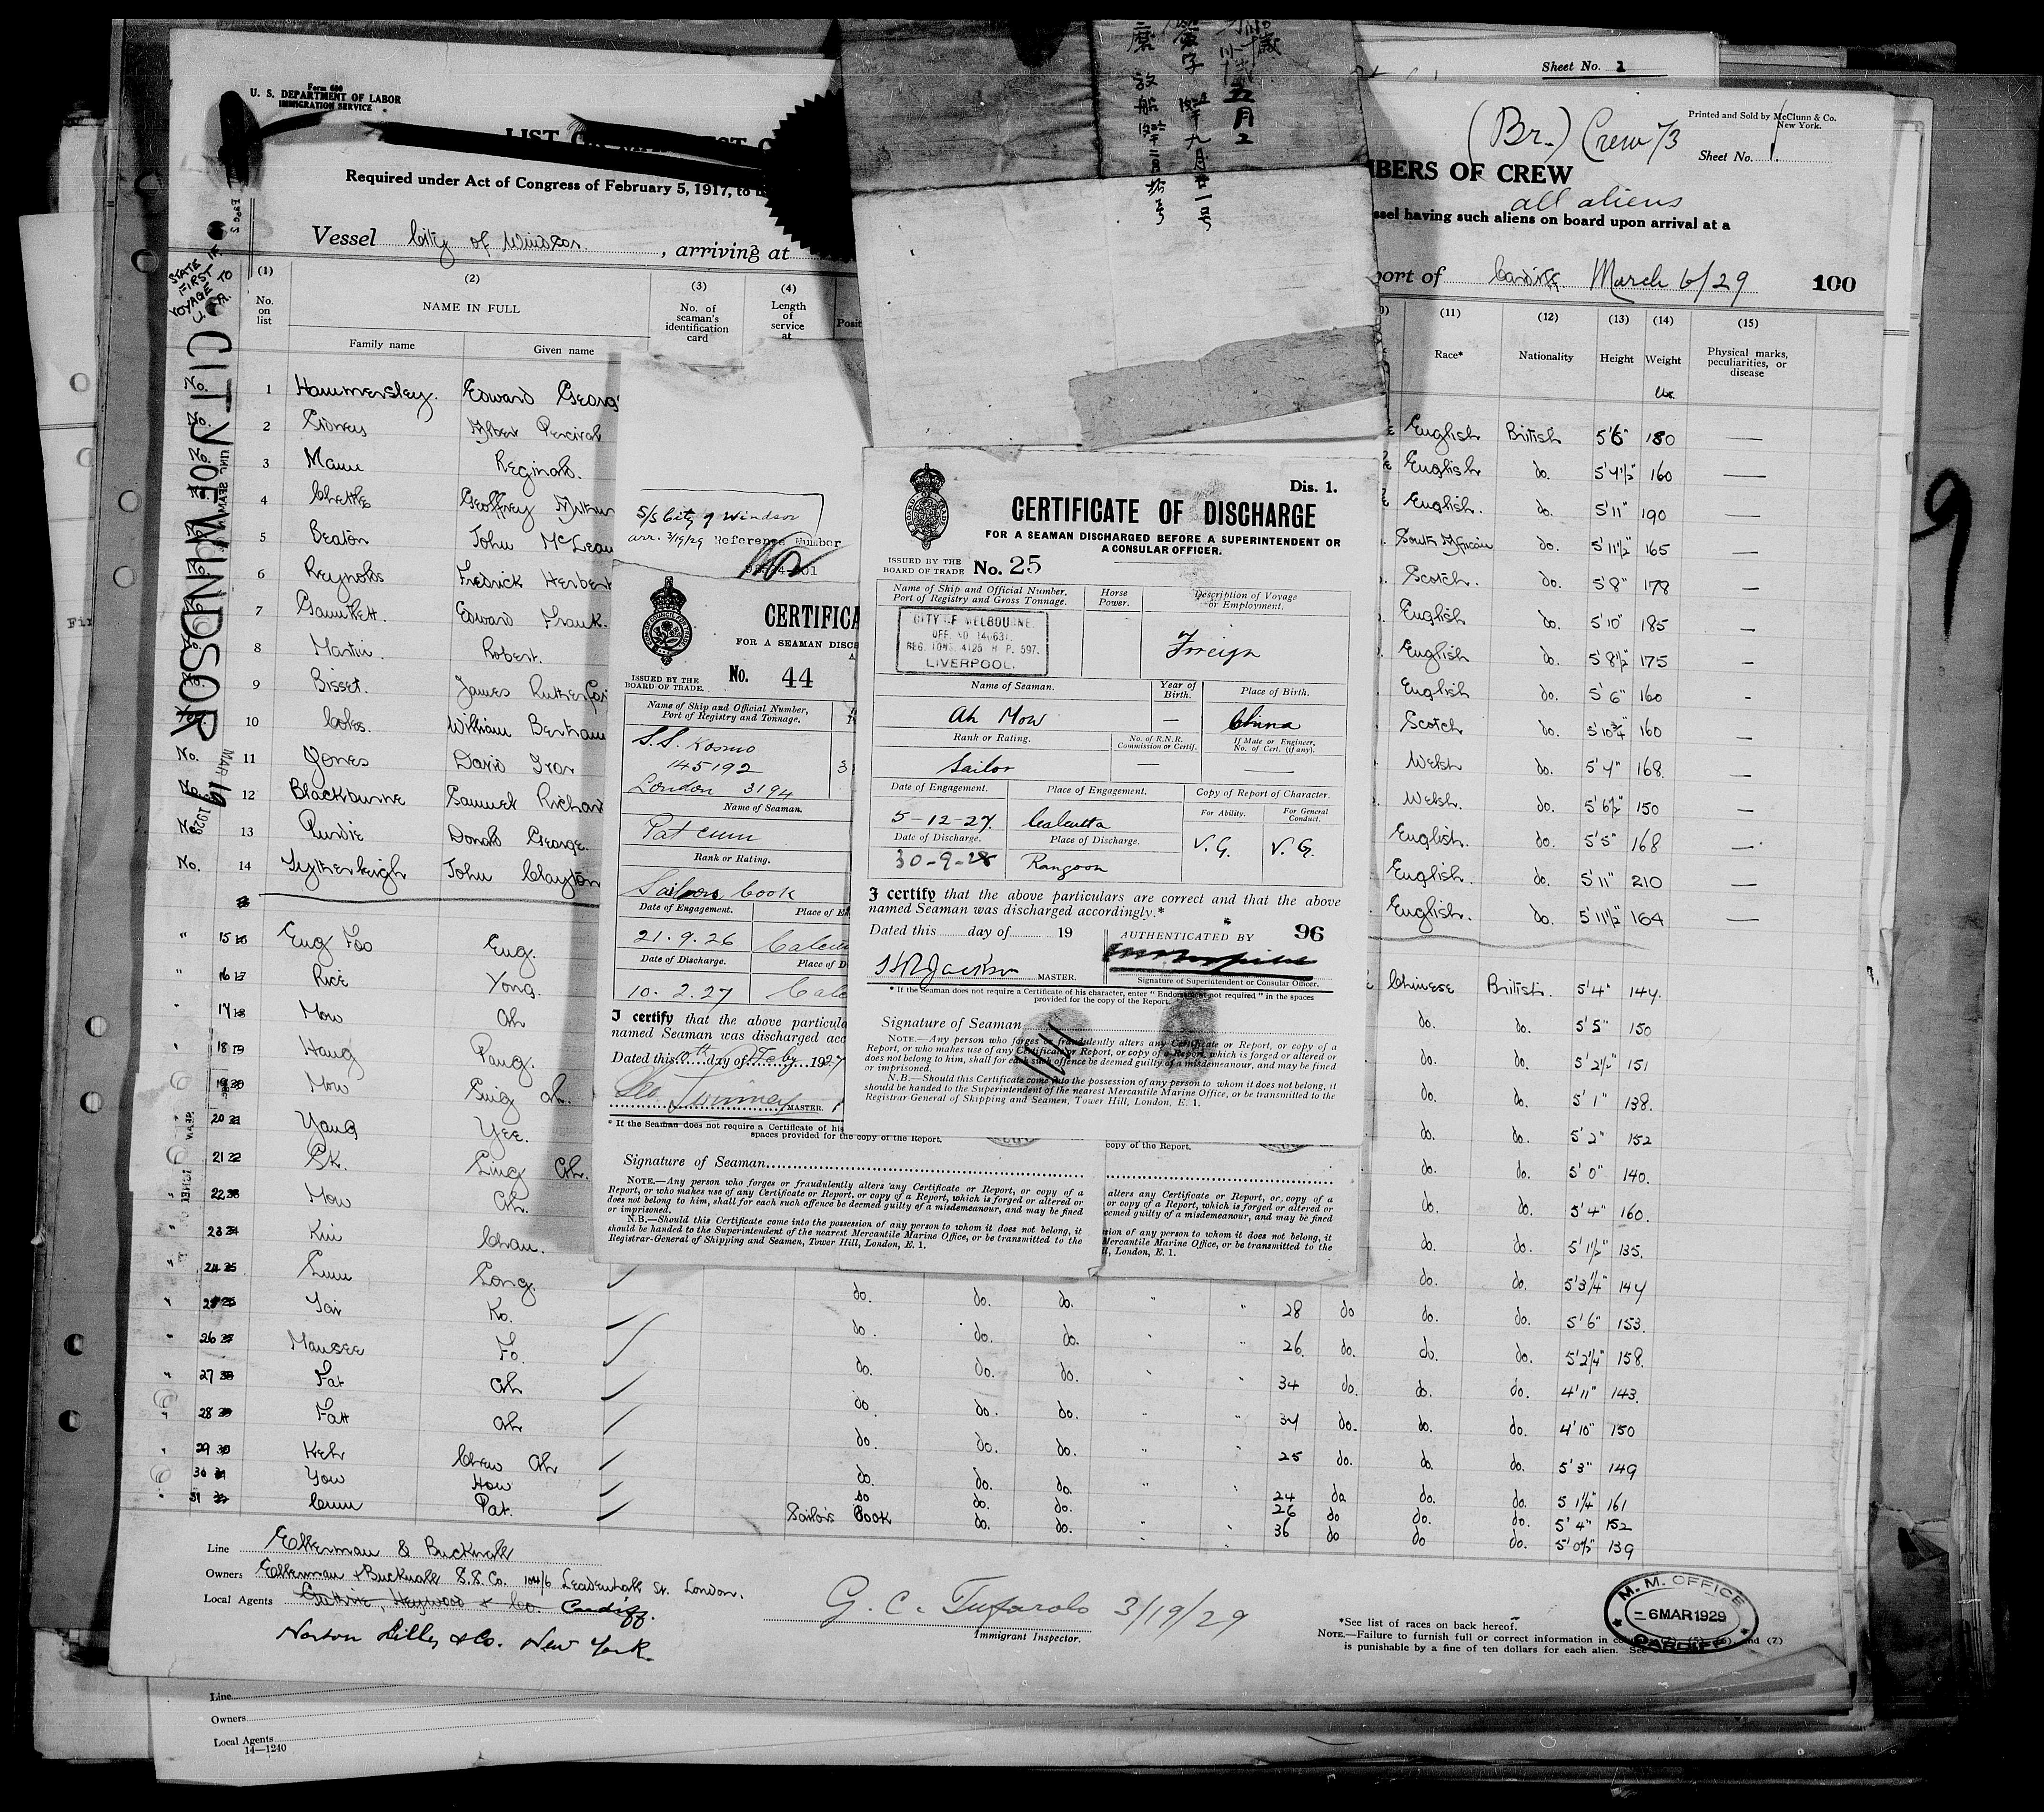 Sheet No. 2
Form 680
U. S. DEPARTMENT OF LABOR
IMMIGRATION SERVICE
(Br.) Crew 73
Printed and Sold by McClunn & Co.
New York.
Sheet No. 1
MBERS OF CREW
all aliens
Required under Act of Congress of February 5, 1917, to
ssel having such aliens on board upon arrival at a
Vessel City of Windsor, arriving at
port of Cardiff March 6/29 100
STATE IF
FIRST
VOYAGE TO
U.S.A.
CITY OF WINDSOR
MAR 19 1929
(1) (2) (3) (4) (11) (12) (13) (14) (15)
No. on list
NAME IN FULL
Family name Given name
No. of seaman's identification card
Length of service at
Posit
Race* Nationality Height Weight Physical marks, peculiarities, or disease
1 Hammersley. Edward Georg English British 5'6" 180 —
2 Albert Percival English do. 5'4½" 160 —
3 Mann Reginald. English. do. 5'11" 190 —
4 Chettle Geoffrey Arthur South African do. 5'11½" 165 —
5 Beaton John McLean Scotch. do. 5'8" 178 —
6 Reynolds Fredrick Herbert English do. 5'10" 185 —
7 Gauntlett. Edward Frank. English do. 5'8½" 175 —
8 Martin. Robert. English do. 5'6" 160 -
9 Bisset. James Rutherfor Scotch do. 5'10¾" 160 —
10 Coles. William Bertram Welsh do. 5'4" 168. —
No. 11 Jones David Ivor Welsh. do. 5'6½" 150 —
No. 12 Blackburne Samuel Richar English. do. 5'5" 168 —
No. 13 Purdie Donald George. English. do. 5'11" 210 —
No. 14 Lytherleigh John Clayton English. do. 5'11½" 164 —
" 15 Eng Foo Eng. Chinese British. 5'4" 147.
" 16 Rice Yong. do. do. 5'5" 150
" 17 Mow Ah do. do. 5'2½" 151
" 18 Hang Pang. do. do. 5'1" 138.
19 Mow Ping Ah. do. do. 5'2" 152
20 Yang Yee. do. do. 5'0" 140.
21 Ling Ah. do. do. 5'4" 160.
" 22 Mow Ah. do. do. 5'1½" 135.
23 Kin Chan. do. do. 5'3¼" 144
" 24 Lum Long. do. do. do. " " 28 do do. do. 5'6" 153.
" 25 Tai Ko. do. do. do. " " 26. do. do. do. 5'2¼" 158.
" 26 Mansee Fo. do. do. do. " " 34 do. do. do. 4'11" 143.
" 27 Fat Ah do. do. do. " " 34 do. do. do. 4'10" 150
" 28 Fatt Ah do. do. do. " " 25 do. do. do. 5'3" 149
" 29 Keh Chew Ah do. do. do. " " 24 do do. do. 5 1¼" 161
" 30 You How do do. do. 26 do do. do. 5'4" 152
" 31 Cum Pat. Sailors Cook do. do. " " 36 do do do. 5'0½" 139
S/S City of Windsor
arr. 3/19/29 Reference Number
CERTIFICA
FOR A SEAMAN DISCH
ISSUED BY THE
BOARD OF TRADE. No. 44
Name of Ship and Official Number,
Port of Registry and Tonnage.
S.S. Kosmo
145192
London 3194
Name of Seaman.
Pat cum
Rank or Rating.
Sailors Cook
Date of Engagement. Place of E
21.9.26 Calcu
Date of Discharge. Place of D
10. 2.27 Calc
I certify that the above particula
named Seaman was discharged acc
Dated this 10th day of Feby 1927
MASTER.
* If the Seaman does not require a Certificate of his
spaces provided for the copy of the Report.
Signature of Seaman
NOTE.—Any person who forges or fraudulently alters any Certificate or Report, or copy of a
Report, or who makes use of any Certificate or Report, or copy of a Report, which is forged or altered or
does not belong to him, shall for each such offence be deemed guilty of a misdemeanour, and may be fined
or imprisoned.
N.B.—Should this Certificate come into the possession of any person to whom it does not belong, it
should be handed to the Superintendent of the nearest Mercantile Marine Office, or be transmitted to the
Registrar-General of Shipping and Seamen, Tower Hill, London, E. 1.
copy of the Report.
alters any Certificate or Report, or copy of a
or copy of a Report, which is forged or altered or
eemed guilty of a misdemeanour, and may be fined
sion of any person to whom it does not belong, it
Mercantile Marine Office, or be transmitted to the
ll, London, E. 1.
Dis. 1.
CERTIFICATE OF DISCHARGE
FOR A SEAMAN DISCHARGED BEFORE A SUPERINTENDENT OR
A CONSULAR OFFICER.
ISSUED BY THE
BOARD OF TRADE No. 25
Name of Ship and Official Number,
Port of Registry and Gross Tonnage.
Horse Power.
Description of Voyage
or Employment.
CITY OF MELBOURNE.
OFF. NO 140631.
REG. TONS. 4125 H P. 597.
LIVERPOOL.
Foreign
Name of Seaman. Year of Birth. Place of Birth.
Ah Mow — China
Rank or Rating. No. of R.N.R. Commission or Certif. If Mate or Engineer, No. of Cert. (if any).
Sailor — —
Date of Engagement. Place of Engagement. Copy of Report of Character.
For Ability. For General Conduct.
5-12-27. Calcutta
Date of Discharge. Place of Discharge.
V.G. V.G.
30-9-28 Rangoon
I certify that the above particulars are correct and that the above
named Seaman was discharged accordingly.*
Dated this day of 19 AUTHENTICATED BY 96
Jackson MASTER.
Signature of Superintendent or Consular Officer.
* If the Seaman does not require a Certificate of his character, enter "Endorsement not required" in the spaces
provided for the copy of the Report.
Signature of Seaman
NOTE.—Any person who forges or fraudulently alters any Certificate or Report, or copy of a
Report, or who makes use of any Certificate or Report, or copy of a Report, which is forged or altered or
does not belong to him, shall for each such offence be deemed guilty of a misdemeanour, and may be fined
or imprisoned.
N.B.—Should this Certificate come into the possession of any person to whom it does not belong, it
should be handed to the Superintendent of the nearest Mercantile Marine Office, or be transmitted to the
Registrar General of Shipping and Seamen, Tower Hill, London, E. 1.
9
Line Ellerman & Bucknall
Owners Ellerman & Bucknall S.S. Co. 104/6 Leadenhall St. London.
Local Agents Guthrie, Heywood & Co. Cardiff.
Norton Lilly & Co. New York.
G. C. Tufarolo 3/19/29
Immigrant Inspector.
M. M. OFFICE
6 MAR 1929
CARDIFF
*See list of races on back hereof.
NOTE.—Failure to furnish full or correct information in and (7)
is punishable by a fine of ten dollars for each alien. See
Line
Owners
Local Agents
14—1240